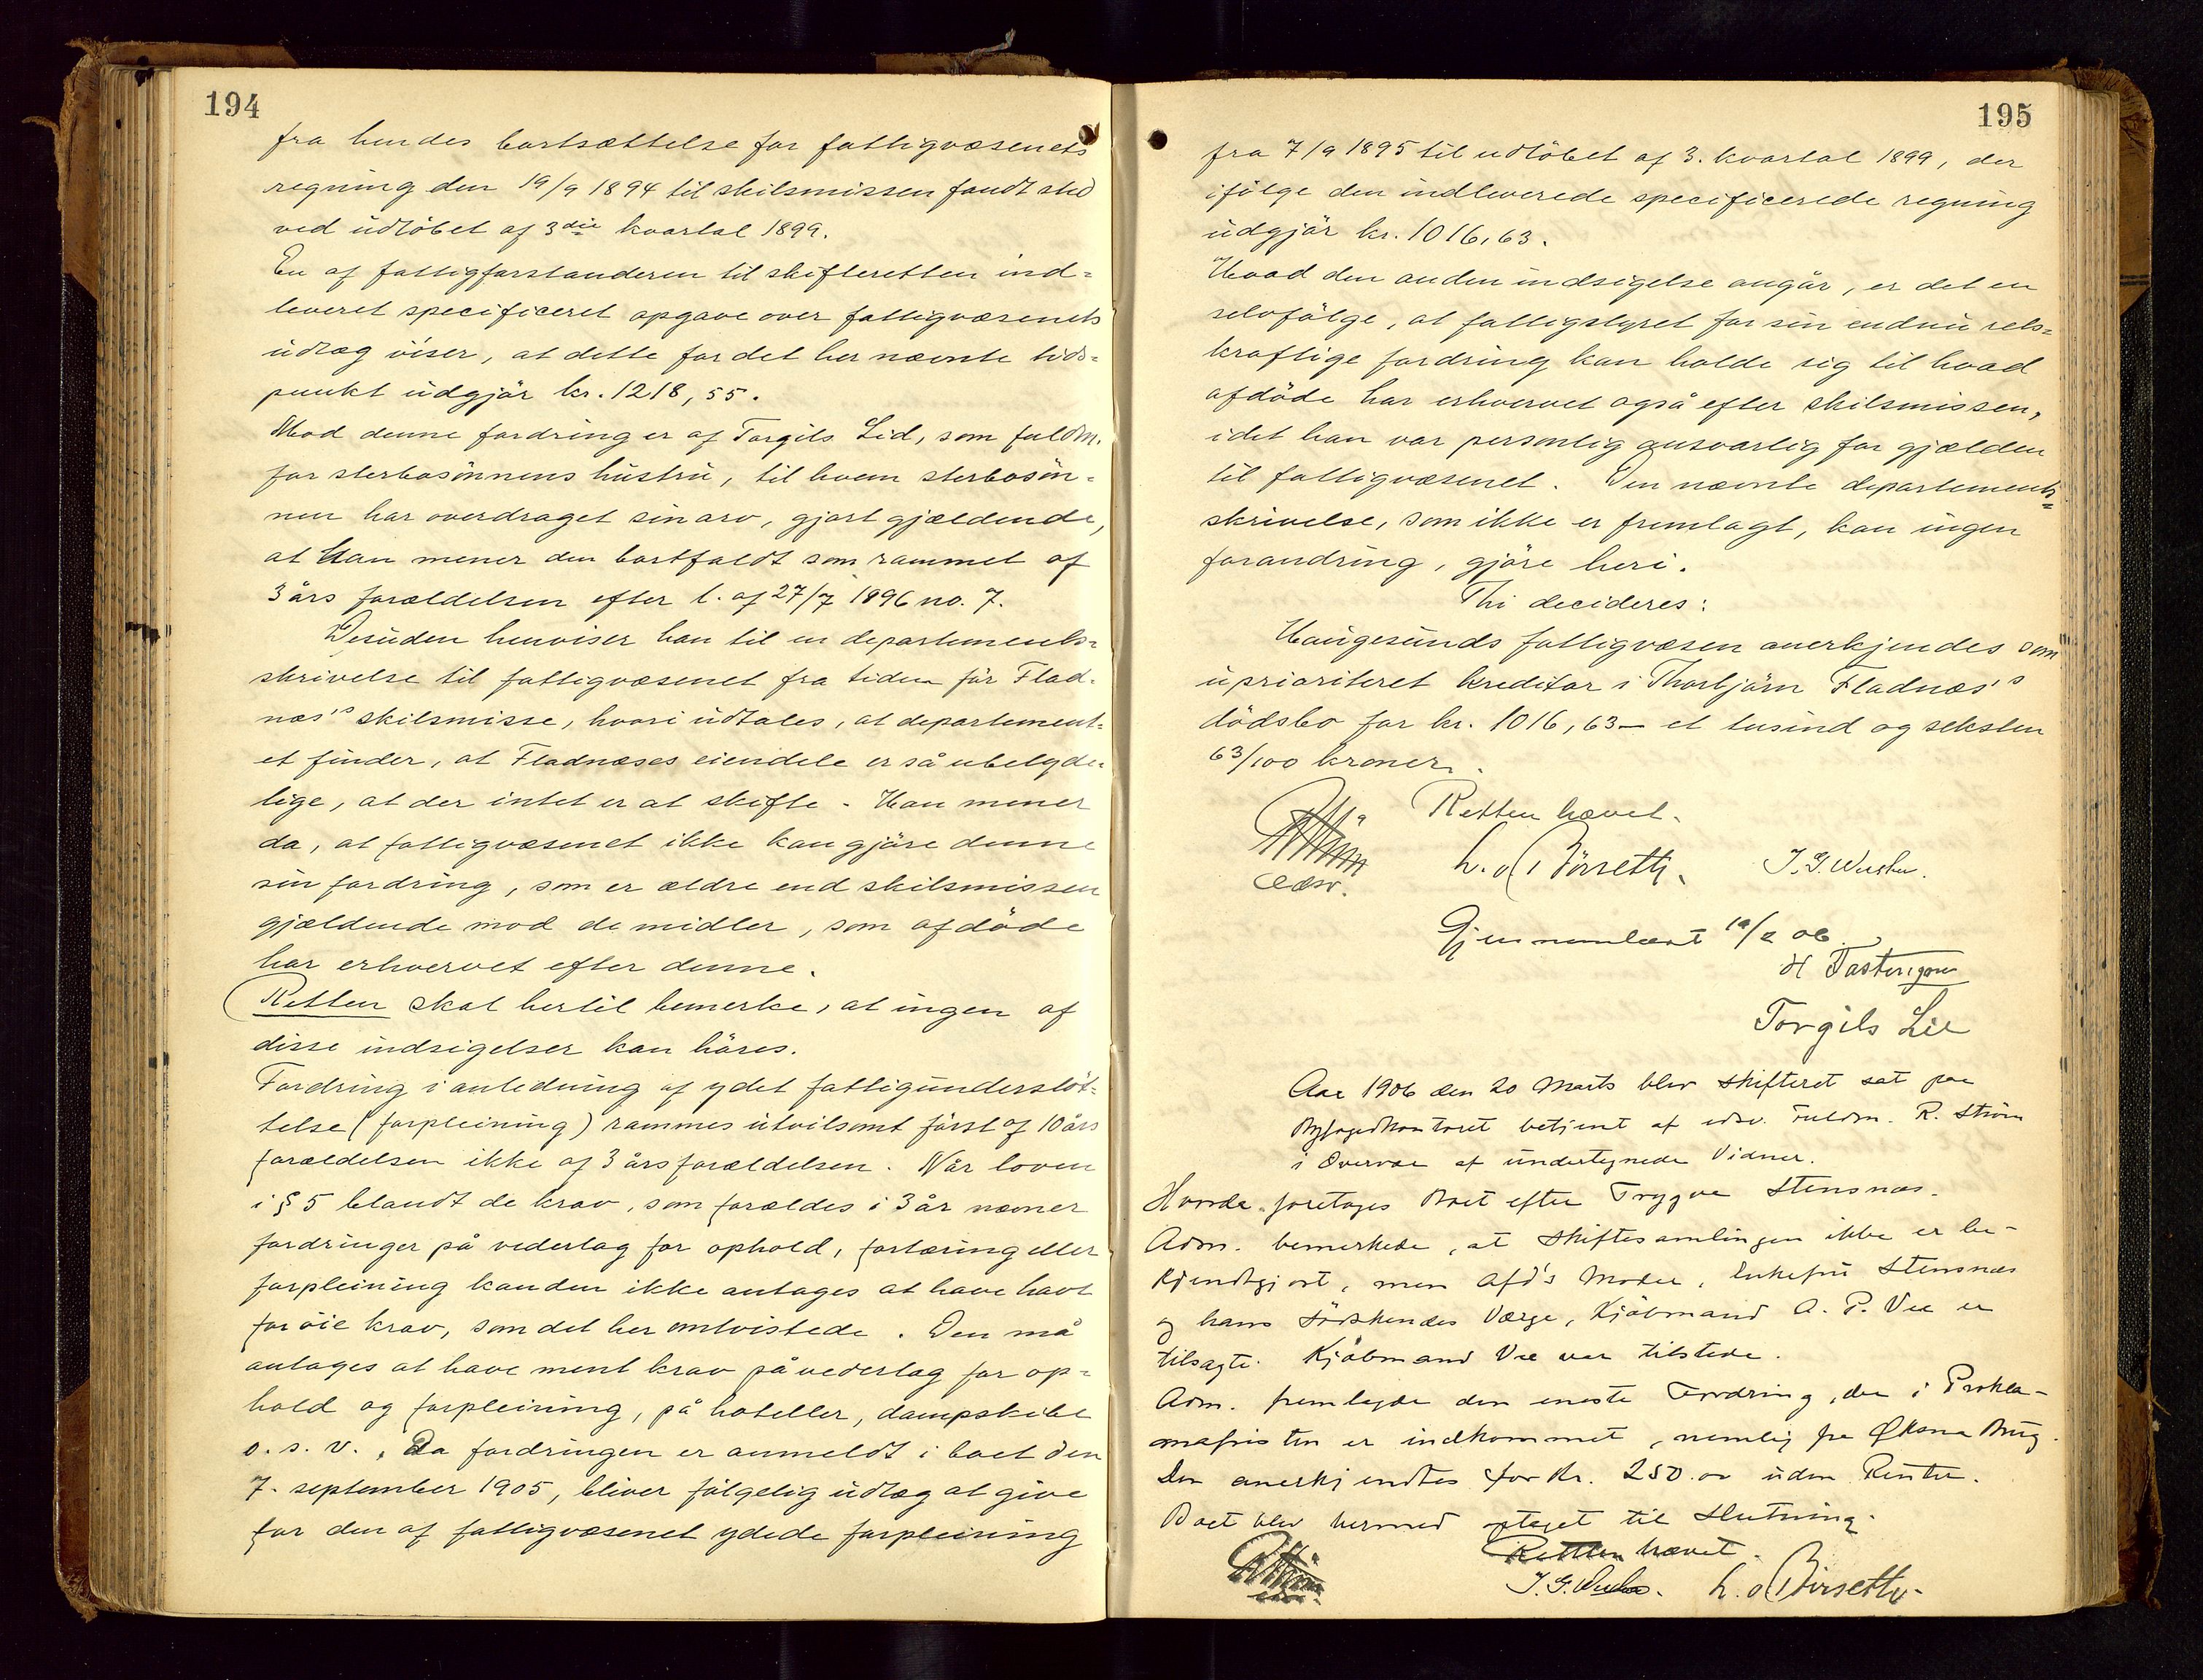 194
fra hendes bortsættelse for fattigvæsenets
regning den 19/9 1894 til skilsmissen fandt sted
ved udløbet af 3die kvartal 1899.
En af fattigforstanderen til skifteretten ind=
leveret specificeret opgave over fattigvæsenets
udlæg viser, at dette for det her nævnte tids=
punkt udgjör kr. 1218,55.
Mod denne fordring er af Torgils Lid, som fuldm.
for sterbosönnens hustru, til hvem sterbosön=
nen har overdraget sin arv, gjort gjældende,
at han mener den bortfaldt som rammet af
3 års forældelsen efter l. af 27/7 1896 no. 7.
Desuden henviser han til en departements=
skrivelse til fattigvæsenet fra tiden för Flad=
næs's skilsmisse, hvori udtales, at department=
et finder, at Fladnæses eiendele er så ubetyde=
lige, at der intet er at skifte. Han mener
da, at fattigvæsenet ikke kan gjöre denne
sin fordring, som er ældre end skilsmissen
gjældende mod de midler, som afdöde
har erhvervet efter denne.
Retten skal hertil bemerke, at ingen af
disse indsigelser kan höres.
Fordring i anledning af ydet fattigunderstöt=
telse (forpleining) rammes utvilsomt först af 10 års
forældelsen ikke af 3 årsforældelsen. Når loven
i § 5 blandt de krav, som forældes i 3 år nævner
fordringer på vederlag for ophold, fortæring eller
forpleining kan den ikke antages at have havt
for öie krav, som det her omtvistede. Den må
antages at have ment krav på vederlag for op=
hold og forpleining, på hoteller, dampskibe
o. s. v. Da fordringen er anmeldt i boet den
7. september 1905, bliver fölgelig udlæg at give
for den af fattigvæsenet ydede forpleining
195
fra 7/9 1895 til udlöbet af 3. kvartal 1899, der
ifölge den indleverede specificerede regning
udgjör kr. 1016,63.
Hvad den anden indsigelse angår, er det en
selvfölge, at fattigstyret for sin endnu rets=
kraftige fordring kan holde sig til hvad
afdöde har erhvervet også efter skilsmissen,
idet han var personlig ansvarlig for gjælden
til fattigvæsenet. Den nævnte departements=
skrivelse, som ikke er fremlagt, kan ingen
forandring, gjöre heri.
Thi decideres:
Haugesunds fattigvæsen anerkjendes som
uprioriteret kreditor i Thorbjörn Fladnæs's
dödsbo for kr. 1016,63 — et tusind og seksten
63/100 kroner.
Retten hævet.
edsv. L. o. Börseth. J. G.
Gjennemlæst 19/2 06
H
Torgils Lid
Aar 1906 den 20 Marts blev Skifteret sat paa
Byfogedkontoret betjent af edsv. Fuldm. R. Ström
i Overvær af undertegnede Vidner.
Hvorda foretoges Boet efter Trygve Stensnæs.
Adm. bemerkede, at Skiftesamlingen ikke er be-
kjendtgjort, men Afd's Moder, Enkefru Stensnæs
og hans Södskendes Værge, Kjöbmand A. P. Vee er
tilsagte. Kjöbmand Vee var tilstede.
Adm. fremlagde den eneste Fordring, der i Prokla-
mafristen er indkommet, nemlig fra Øksna Brug.
Den anerkjendtes for Kr. 250.00 uden Renter.
Boet blev hermed optaget til Slutning.
Retten hævet.
J. G. L. o. Börseth